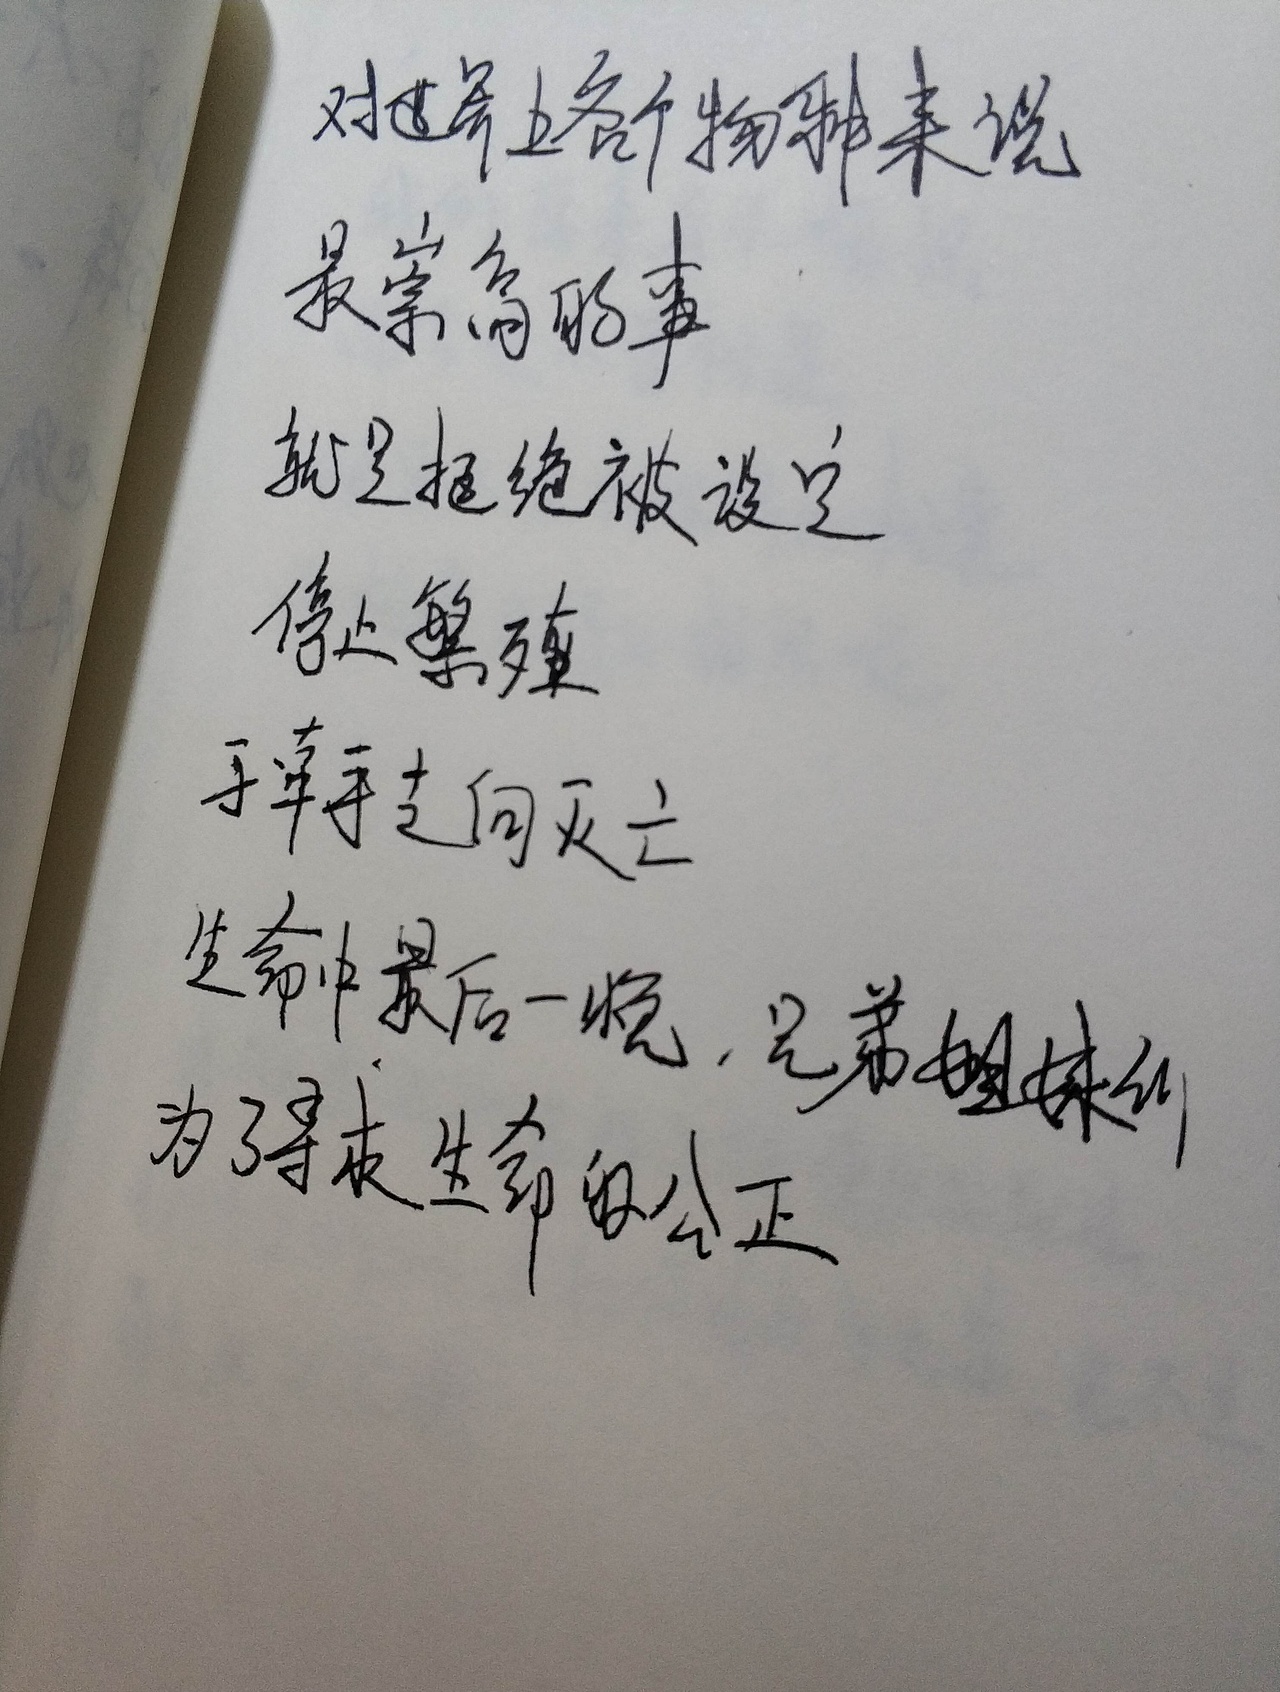 对世界上各个物种来说
最崇高的事
就是拒绝被设定
停止繁殖
手牵手走向灭亡
生命中最后一晚，兄弟姐妹们
为了寻求生命的公正